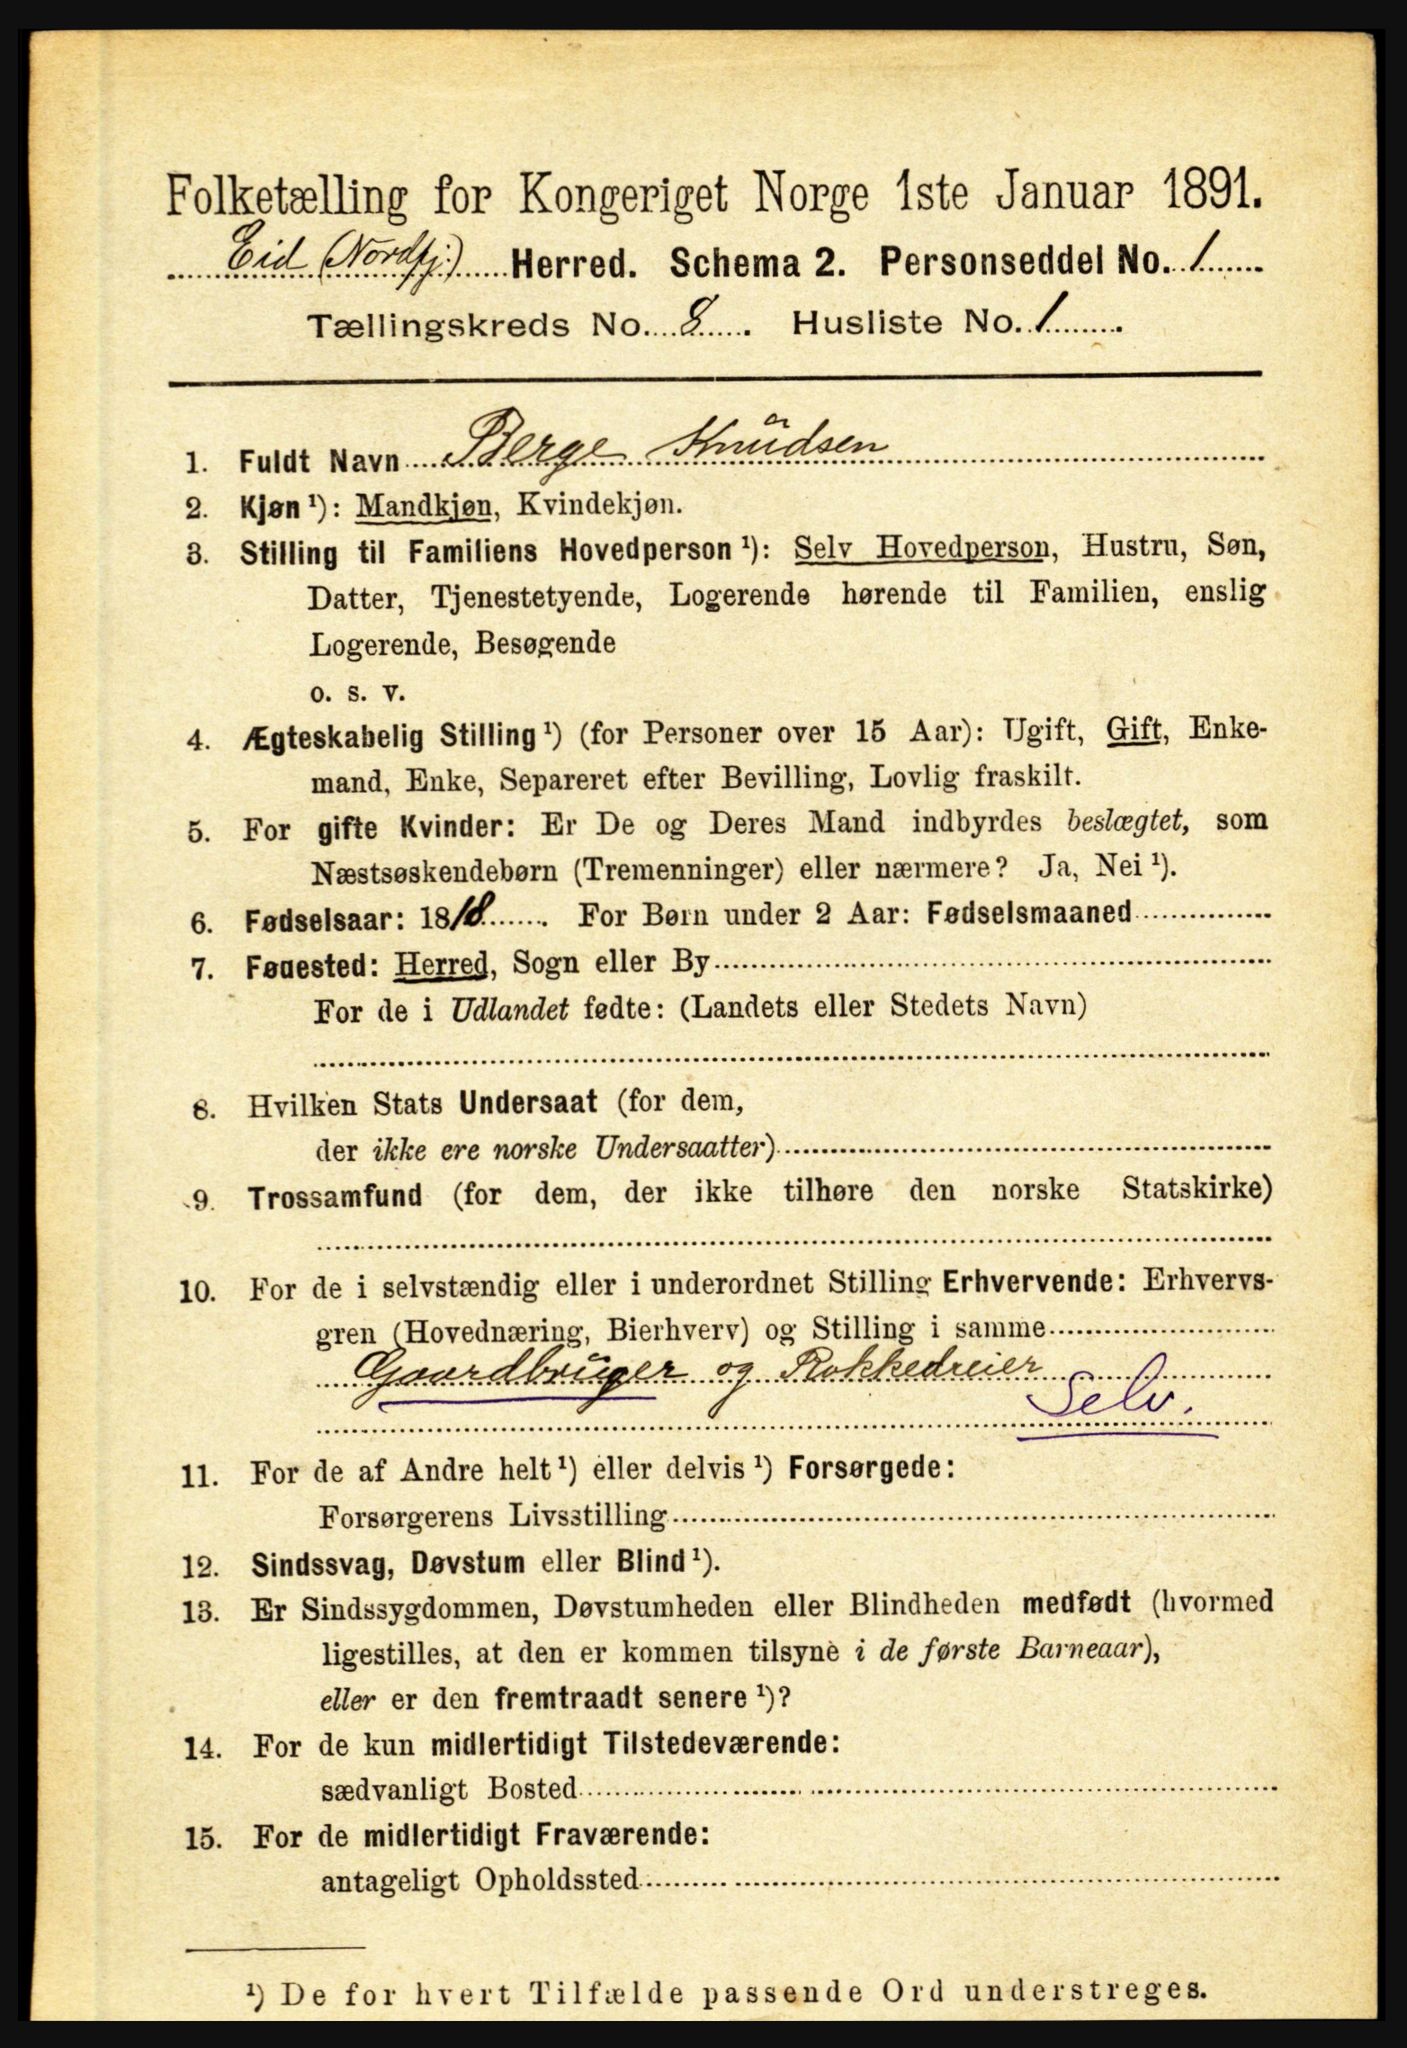 Folketælling for Kongeriget Norge 1ste Januar 1891.
Eid (Nordfj.) Herred. Schema 2. Personseddel No. 1
Tællingskreds No. 8. Husliste No. 1.
1. Fuldt Navn Berge Knudsen
2. Kjøn ¹): Mandkjøn, Kvindekjøn.
3. Stilling til Familiens Hovedperson ¹): Selv Hovedperson, Hustru, Søn,
Datter, Tjenestetyende, Logerende hørende til Familien, enslig
Logerende, Besøgende
o. s. v.
4. Ægteskabelig Stilling ¹) (for Personer over 15 Aar): Ugift, Gift, Enke-
mand, Enke, Separeret efter Bevilling, Lovlig fraskilt.
5. For gifte Kvinder: Er De og Deres Mand indbyrdes beslægtet, som
Næstsøskendebørn (Tremenninger) eller nærmere? Ja, Nei ¹).
6. Fødselsaar: 1818. For Børn under 2 Aar: Fødselsmaaned
7. Fødested: Herred, Sogn eller By
For de i Udlandet fødte: (Landets eller Stedets Navn)
8. Hvilken Stats Undersaat (for dem,
der ikke ere norske Undersaatter)
9. Trossamfund (for dem, der ikke tilhøre den norske Statskirke)
10. For de i selvstændig eller i underordnet Stilling Erhvervende: Erhvervs-
gren (Hovednæring, Bierhverv) og Stilling i samme
Gaardbruger og Rokkedreier
Selv.
11. For de af Andre helt ¹) eller delvis ¹) Forsørgede:
Forsørgerens Livsstilling
12. Sindssvag, Døvstum eller Blind ¹).
13. Er Sindssygdommen, Døvstumheden eller Blindheden medfødt (hvormed
ligestilles, at den er kommen tilsyne i de første Barneaar),
eller er den fremtraadt senere ¹)?
14. For de kun midlertidigt Tilstedeværende:
sædvanligt Bosted
15. For de midlertidigt Fraværende:
antageligt Opholdssted
¹) De for hvert Tilfælde passende Ord understreges.